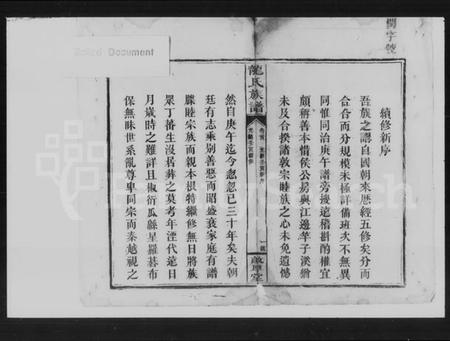 續修新序
吾族之譜自國朝來歷經五修矣分而
合合而分規模未極詳備班次不無異
同惟同治庚午譜旁搜遠稽斟酌權宜
頗稱善本惜侯公房與江邊竿子溪猶
未及合揆諸敦宗睦族之心未免遺憾
龍氏族譜
卷首
一
敦厚堂
然自庚午迄今忽忽已三十年矣夫朝
廷有志乘別善惡而昭盛衰家庭有譜
牒睦宗族而親本根特繼修無日將族
眾丁蕃生沒居葬之莫考年湮代遠日
月歲時之難詳且椒衍瓜緜星羅碁布
保無昧世系亂尊卑同宗而秦越視之
Document